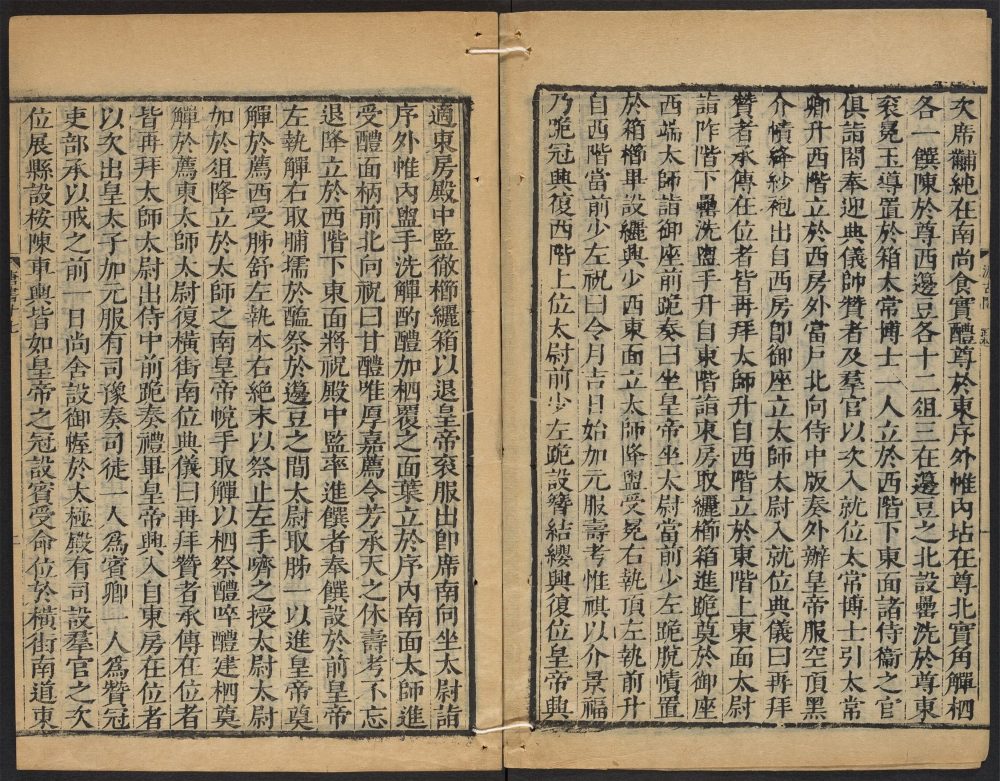 次席黼純在南尚食實醴尊於東序外帷內坫在尊北實角觶柶
各一饌陳於尊西籩豆各十二俎三在籩豆之北設罍洗於尊東
袞冕玉導置於箱太常博士一人立於西階下東面諸侍衞之官
俱詣閤奉迎典儀帥贊者及羣官以次入就位太常博士引太常
卿升西階立於西房外當戶北向侍中版奏外辦皇帝服空頂黑
介幘絳紗袍出自西房卽御座立太師太尉入就位典儀曰再拜
贊者承傳在位者皆再拜太師升自西階立於東階上東面太尉
詣阼階下罍洗盥手升自東階詣東房取纚櫛箱進跪奠於御座
西端太師詣御座前跪奏曰坐皇帝坐太尉當前少左跪脫幘置
於箱櫛畢設纚興少西東面立太師降盥受冕右執頂左執前升
自西階當前少左祝曰令月吉日始加元服壽考惟祺以介景福
乃跪冠興復西階上位太尉前少左跪設簪結纓興復位皇帝興
適東房殿中監徹櫛纚箱以退皇帝袞服出卽席南向坐太尉詣
序外帷內盥手洗觶酌醴加柶覆之面葉立於序內南面太師進
受醴面柄前北向祝曰甘醴唯厚嘉薦令芳承天之休壽考不忘
退降立於西階下東面將祝殿中監率進饌者奉饌設於前皇帝
左執觶右取脯擩於醢祭於籩豆之間太尉取胏一以進皇帝奠
觶於薦西受胏舒左執本右絕末以祭止左手嚌之授太尉太尉
加於俎降立於太師之南皇帝帨手取觶以柶祭醴啐醴建柶奠
觶於薦東太師太尉復橫街南位典儀曰再拜贊者承傳在位者
皆再拜太師太尉出侍中前跪奏禮畢皇帝興入自東房在位者
以次出皇太子加元服有司豫奏司徒一人爲賓卿一人爲贊冠
吏部承以戒之前一日尚舍設御幄於太極殿有司設羣官之次
位展縣設桉陳車輿皆如皇帝之冠設賓受命位於橫街南道東